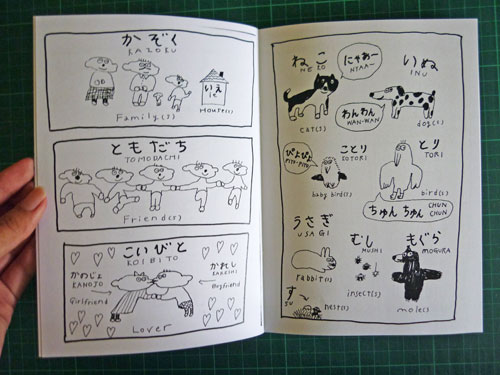 かぞく
KAZOKU
いえ
IE
Family(s)
House(s)
ともだち
TOMODACHI
Friend(s)
こいびと
KOIBITO
かのじょ
KANOJO
Girlfriend
かれし
KARESHI
Boyfriend
Lover
ねこ
NEKO
にゃあー
NYAA~
いぬ
INU
わんわん
WAN-WAN
cat(s)
dog(s)
ぴよぴよ
PIYO-PIYO
ことり
KOTORI
とり
TORI
baby bird(s)
bird(s)
ちゅん ちゅん
CHUN
CHUN
うさぎ
USAGI
むし
MUSHI
もぐら
MOGURA
rabbit(s)
insect(s)
mole(s)
す
SU
nest(s)